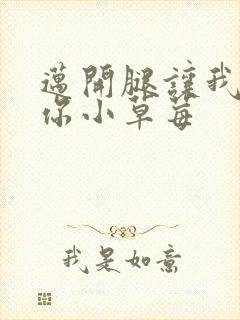 邁開腿讓我
你小草每
我是如意